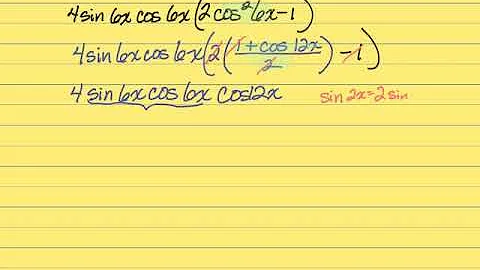 4sin6xcos6x(2cos²6x-1)
4sin6xcos6x(2(1+cos12x/2)-1)
4sin6xcos6xcos12x sin2x=2sin